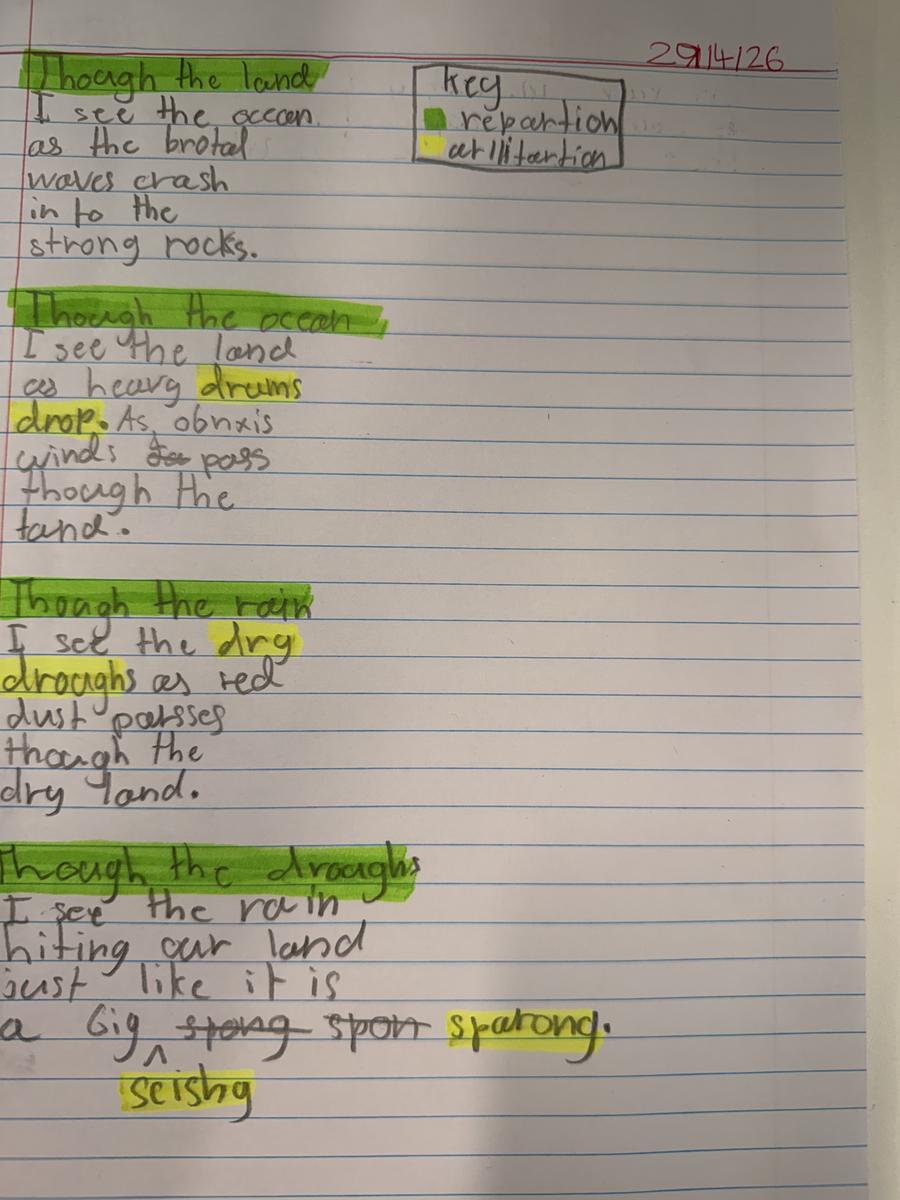 29/4/26
Key
repartion
arllitartion
Though the land
I see the ocean
as the brotal
waves crash
in to the
strong rocks.
Though the ocean
I see the land
as heavy drums
drop. As obnxis
winds pass
though the
land.
Though the rain
I see the dry
droughs as red
dust parsses
though the
dry land.
Though the droughs
I see the rain
hiting our land
just like it is
a big stong spon sparong.
scishy